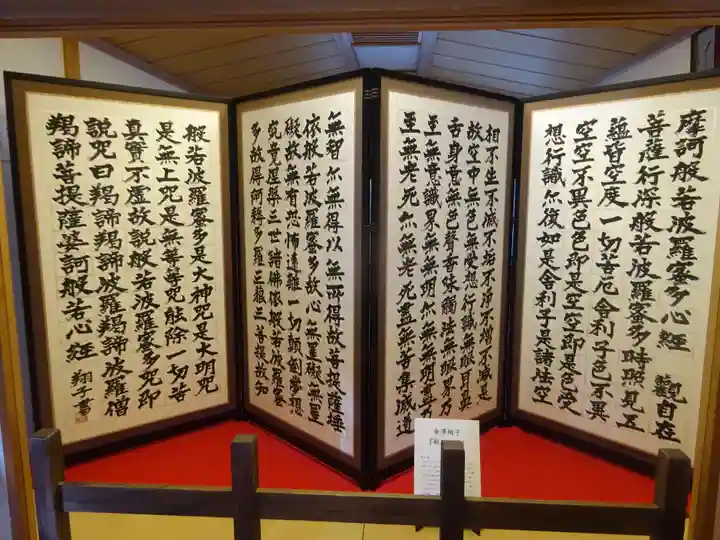 摩訶般若波羅蜜多心経 觀自在
菩薩行深般若波羅蜜多時照見五
蘊皆空度一切苦厄舎利子色不異
空空不異色色即是空空即是色受
想行識亦復如是舎利子是諸法空
相不生不滅不垢不浄不増不減是
故空中無色無受想行識無眼耳鼻
舌身意無色聲香味觸法無眼界乃
至無意識界無無明亦無無明盡乃
至無老死亦無老死盡無苦集滅道
無智亦無得以無所得故菩提薩埵
依般若波羅蜜多故心無罣礙無罣
礙故無有恐怖遠離一切顛倒夢想
究竟涅槃三世諸佛依般若波羅蜜
多故得阿耨多羅三藐三菩提故知
般若波羅蜜多是大神咒是大明咒
是無上咒是無等等咒能除一切苦
真實不虚故説般若波羅蜜多咒即
説咒曰羯諦羯諦波羅羯諦波羅僧
羯諦菩提薩婆訶般若心経 翔子書
金澤翔子